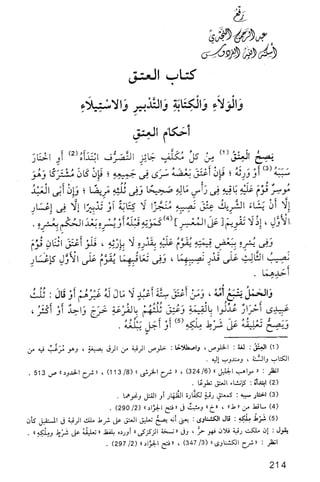 رفع
عبد الرحمن النجدي
أسكنه الله الفردوس
كتاب العتق
والولاء والكتابة والتدبير والاستيلاء
أحكام العتق
يَصِحُّ العِتْقُ (1) مِنْ كُلِّ مُكَلَّفٍ جَائِزِ التَّصَرُّفِ ابْتَدَأَهُ (2) أَوِ اخْتَارَ
سَبَبَهُ (3) أَوْ وَرِثَهُ ؛ فَإِنْ أَعْتَقَ بَعْضَهُ سَرَى فِي جَمِيعِهِ ؛ فَإِنْ كَانَ مُشْتَرَكًا وَهُوَ
مُوسِرٌ قُوِّمَ عَلَيْهِ بَاقِيهِ فِي رَأْسِ مَالِهِ صَحِيحًا وَفِي ثُلُثِهِ مَرِيضًا ؛ وَإِنْ أَبَى العَبْدُ
إِلَّا أَنْ يَشَاءَ الشَّرِيكُ عِتْقَ نَصِيبِهِ مُنَجَّزًا لَا كِتَابَةً أَوْ تَدْبِيرًا إِلَّا فِي إِعْسَارِ
الأَوَّلِ ، إِذْ لَا تَقْوِيمَ [عَلَى المُعْسِرِ] (4) كَمَوْتِهِ قَبْلَهُ أَوْ يُسْرِهِ بَعْدَ الحُكْمِ بِعُسْرِهِ .
وَفِي يُسْرِهِ بِبَعْضِ قِيمَتِهِ يُقَوَّمُ عَلَيْهِ بِقَدْرِهِ لَا بِإِرْثِهِ ، فَلَوْ أَعْتَقَ اثْنَانِ قُوِّمَ
نَصِيبُ الثَّالِثِ عَلَى قَدْرِ نَصِيبِهِمَا ، وَفِي تَعَاقُبِهِمَا يُقَوَّمُ عَلَى الأَوَّلِ كَإِعْسَارِ
أَحَدِهِمَا .
وَالحَمْلُ يَتْبَعُ أُمَّهُ ، وَمَنْ أَعْتَقَ سِتَّةَ أَعْبُدٍ لَا مَالَ لَهُ غَيْرُهُمْ أَوْ قَالَ : ثُلُثُ
عَبِيدِي أَحْرَارٌ عُدِّلُوا بِالقِيمَةِ وَعَتَقَ ثُلُثُهُمْ بِالقُرْعَةِ خَرَجَ وَاحِدٌ أَوْ أَكْثَرُ ،
وَيَصِحُّ تَعْلِيقُهُ عَلَى شَرْطِ مِلْكِهِ (5) أَوْ أَجَلٍ يَبْلُغُهُ .
(1) العِتْقُ : لغة : الخلوص ، واصطلاحًا : خلوص الرقبة من الرق بصيغة ، وهو مُرَغَّبٌ فيه من
الكتاب والسنة ، ومندوب إليه .
انظر : « مواهب الجليل » (324/6) ، « شرح الخرشي » (113/8) ، « شرح الحدود » ص 513 .
(2) ابتدأه : كإنشاء العتق تطوعًا .
(3) اختار سببه : كمعتق رقبة لكفَّارة الظهار أو القتل ونحوهما .
(4) ساقط من « ط » ، « خ » ، ومثبت في « فتح الجَوَاد » (290/2) .
(5) شَرْطِ مِلْكِهِ : قال الكشناوي : يعني أنه يصح تعليق العتق على شرط ملك الرقبة في المستقبل كأن
يقول : إن ملكت رقبة فلان فهو حرٌّ ، وفي نسخة الزكزكي أورده بلفظ « تعليقُهُ على شَرْطٍ ومِلْكِهِ » .
انظر : « شرح الكشناوي » (347/3) ، « فتح الجَوَاد » (297/2) .
214